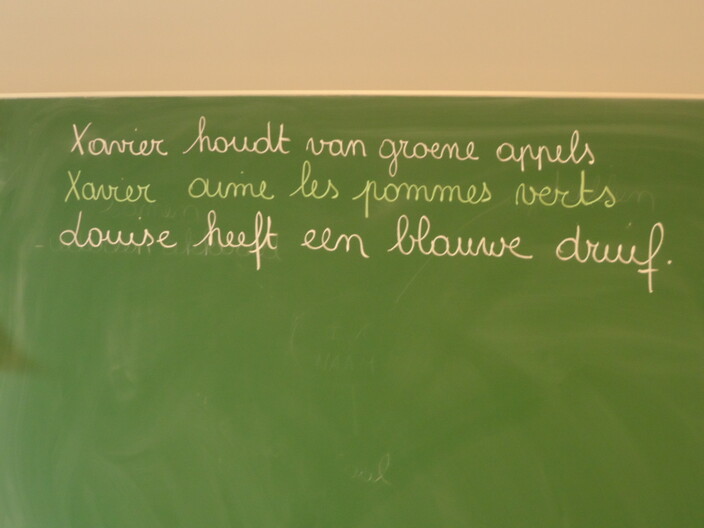 Xavier houdt van groene appels
Xavier aime les pommes verts
Louise heeft een blauwe druif.